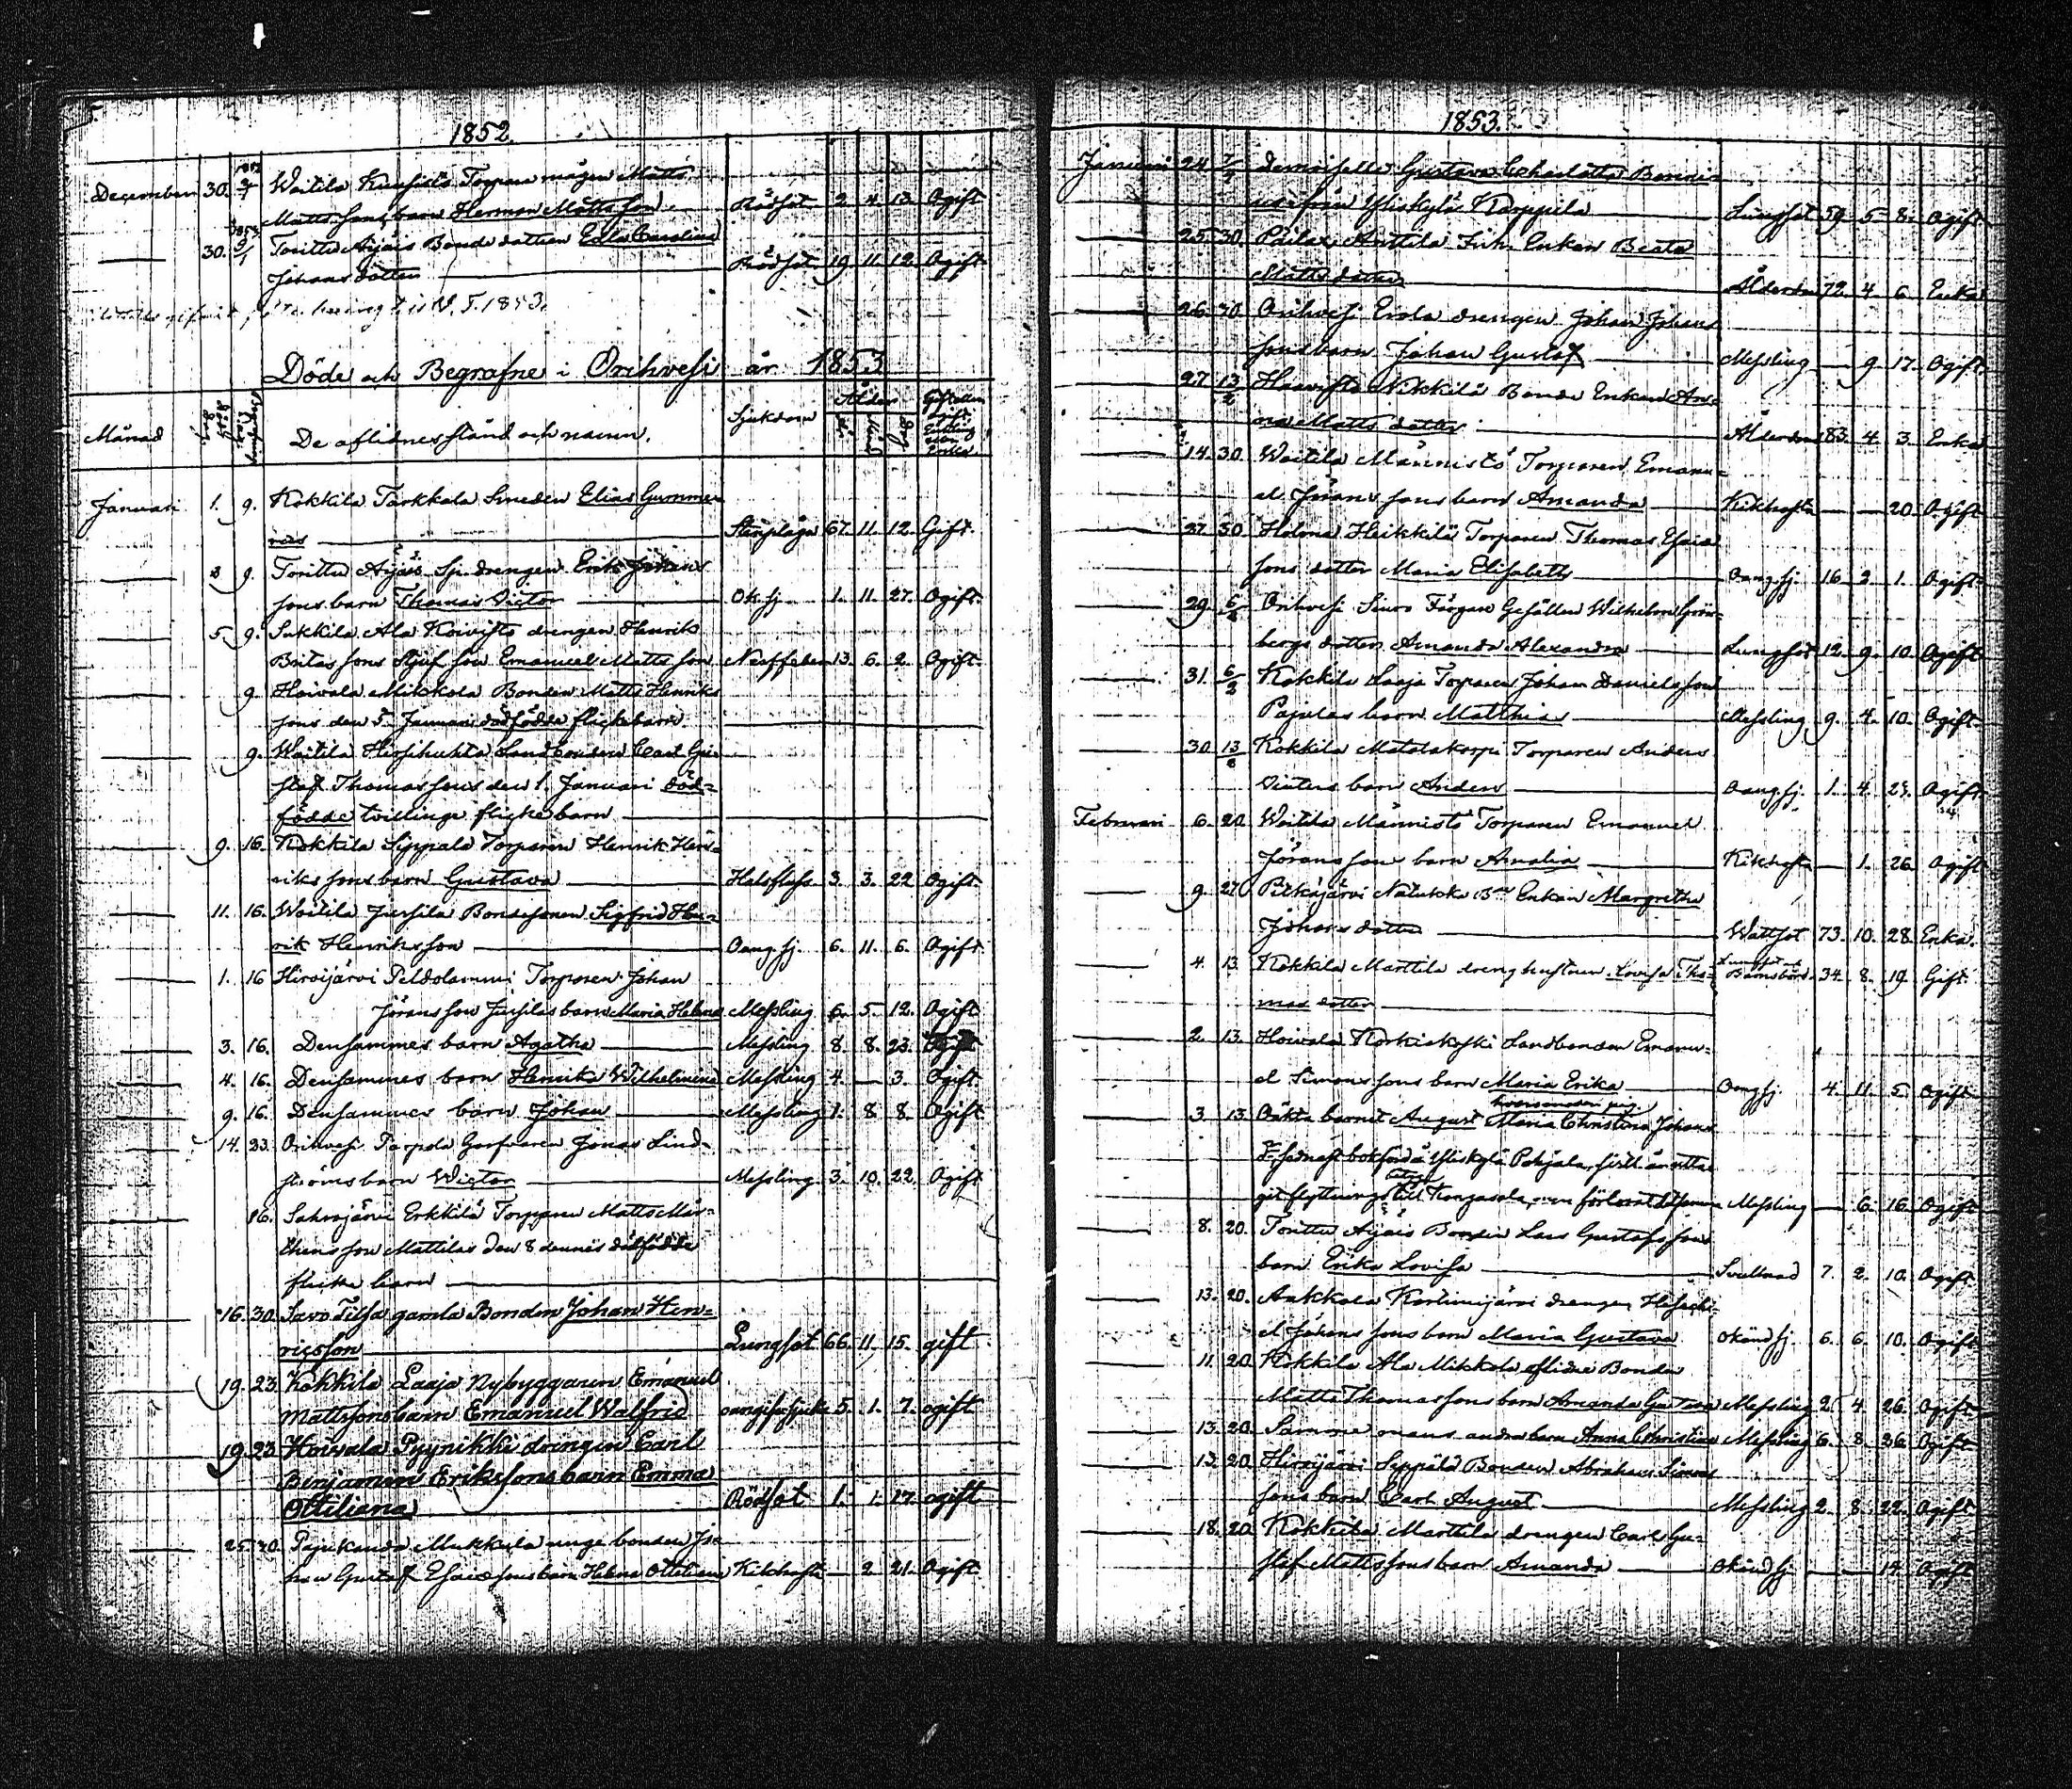 1852.
December 30. Waitila Torpare mågen Matts
Matts sons barn Herman Matts son Rödsot 2. 4. 13. Ogift
30. 9/1 Torittu Äijäis Bonde dottren Edla Carolina
Johans dotter Rödsot 19. 11. 12. Ogift
1853.
Döde och Begrafne i Orihvesi år 1853
Månad De aflidnes stånd och namn. Sjukdom Ålder
Januari 1. 9. Kokkila Tarkkala Smeden Elias Gumme-
rus Stenplåga 67. 11. 12. Gift.
3 9. Torittu Äijäis Sp. drengen Erik Jörans
sons barn Thomas Victor Ok. sj. 1. 11. 27. Ogift
5 9. Sukkila Ala Koivisto drengen Henrik
Britas sons Stjuf son Emanuel Matts son Nerffeber 13. 6. 2. Ogift
9. Hoivala Mikkola Bonden Matts Henriks
sons den 5. Januari dödfödde flickebarn.
9. Waitila Hirsihuhta Landbonden Carl Gu-
staf Thomas sons den 1. Januari död-
födde tvillinge flickebarn
9. 16. Kokkila Sippala Torparen Henrik Hen-
riks sons barn Gustava Halsfluss 3. 3. 22 Ogift
11. 16. Waitila Jussila Bondesonen Sigfrid Hen-
rik Henriksson Oang. sj. 6. 11. 6. Ogift
1. 16 Hirvijärvi Peldolammi Torparen Johan
Jörans son Jussilas barn Maria Helena Messling 6. 5. 12. Ogift
3. 16. Densammes barn Agatha Messling 8. 8. 23.
4. 16. Densammes barn Henrika Wilhelmina Messling 4. — 3. Ogift
9. 16. Densammes barn Johan Messling 1. 8 8. Ogift
14. 23. Orihvesi Parpola Garfvaren Jonas Lind-
ströms barn Wictor Messling 3. 10. 22. Ogift
16. Sahrajärvi Erkkilä Torparen Matts Mår-
thens son Mattilas den 8 dennes dödfödde
flicke barn
16. 30. Savo Tilsa gamla Bonden Johan Hen-
ricsson Lungsot 66. 11. 15. gift
19. 23. Kokkila Laaja Nybyggaren Emanuel
Mattssons barn Emanuel Walfrid oangifven sjuka 5. 1. 7. ogift
19. 23 Hoivala Pyynikki drengen Carl
Benjamin Erikssons barn Emma
Ottiliana Rödsot 1. 1. 27. ogift
25. 30. Pajukanda Mukkula unge bonden Jo-
han Gustaf Esaiassons barn Helena Ottiliana Kikhosta — 2 21. Ogift
1853.
Januari 24 Demoiselle Gustava Charlotta Bonni-
från Yliskylä Karppila Lungsot 59. 5 8. Ogift
25. 30. Anttila Enkan Beata
Matts dotter Ålderdom 72. 4 6. Enka
26. 30. Orihvesi Erola drengen Johan Johans
sons barn Johan Gustaf Messling — 9. 17. Ogift
27. 13/2 Haavisto Nikkilä Bonde Enkan An-
na Matts dotter Ålderdom 83. 4. 3. Enka
14. 30. Waitila Männistö Torparen Emanu-
el Jörans sons barn Amanda Kikhosta — — 20 Ogift
27. 30 Holma Heikkilä Torparen Thomas Esaias
sons dotter Maria Elisabeth Oang. sj. 16. 2. 1. Ogift
29. 6/2 Orihvesi Färgare Gesällen Wilhelm Grön-
bergs dotter Amanda Alexandra Lungsot 12. 9. 10. Ogift
31. 6/2 Kokkila Laaja Torparen Johan Danielsson
Pajulas barn Matthias Messling 9. 4. 10. Ogift
30. 13/2 Kokkila Matalakorpi Torparen Anders
barn Anders Oang. sj. 1. 4. 25. Ogift
Februari 6. 20. Waitila Männistö Torparen Emanuel
Jörans sons barn Amalia Kikhosta — 1. 26. Ogift
9. 20 Pitkäjärvi Natukka Enkan Margretha
Johans dotter Wattsot 73. 10. 28. Enka.
4. 13. Kokkila Marttila dreng hustrun Lovisa Tho-
mas dotter Lungsot och Barnsbörd 34. 8. 19. Gift
2. 13. Hoivala Korkiakoski Landbonden Emanu-
el Simons sons barn Maria Erika Oang. sj. 4. 11. 5. Ogift
3. 13. Oäkta barnet August Maria Christina Johans
D. sednast bokförd å Yliskylä Pohjala,
flyttnings till Kangasala, men förlorat Messling — 6. 16. Ogift
8. 20. Torittu Äijäis Bonden Lars Gustafs sons
barn Erika Lovisa Svullnad 7. 2. 10. Ogift
13. 20. Aakkola Kortinijärvi drengen Heseki-
el Johans sons barn Maria Gustava Okänd sj. 6. 6. 10. Ogift
11. 20. Kokkila Ala Mikkola aflidne Bonden
Matts Thomas sons barn Amanda Gustava Messling 2. 4. 26. Ogift
13. 20. Samme mans andra barn Anna Christina Messling 6. 8. 26. Ogift
13. 20. Hirvijärvi Seppälä Bonden Abraham Simons
sons barn Carl August Messling 2. 8. 22. Ogift
18. 20. Kokkila Marttila drengen Carl Gu-
staf Matts sons barn Amanda Okänd sj. — — 14. Ogift